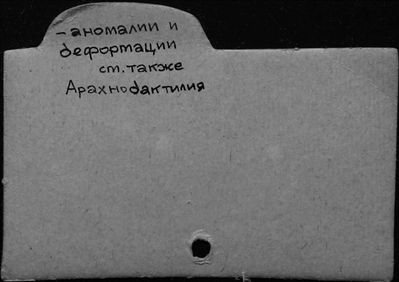 - аномалии и
деформации
см. также
Арахнодактилия